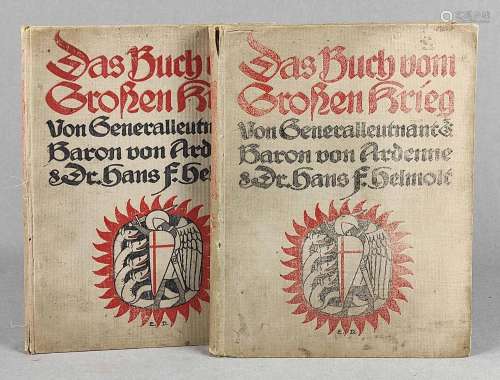 Das Buch v
Großen Kri
Von Generalleutn
Baron von Ard
& Dr. Hans F. Hel
E. D.
Das Buch vom
Großen Krieg
Von Generalleutnant
Baron von Ardenne
& Dr. Hans F. Helmolt
E. D.